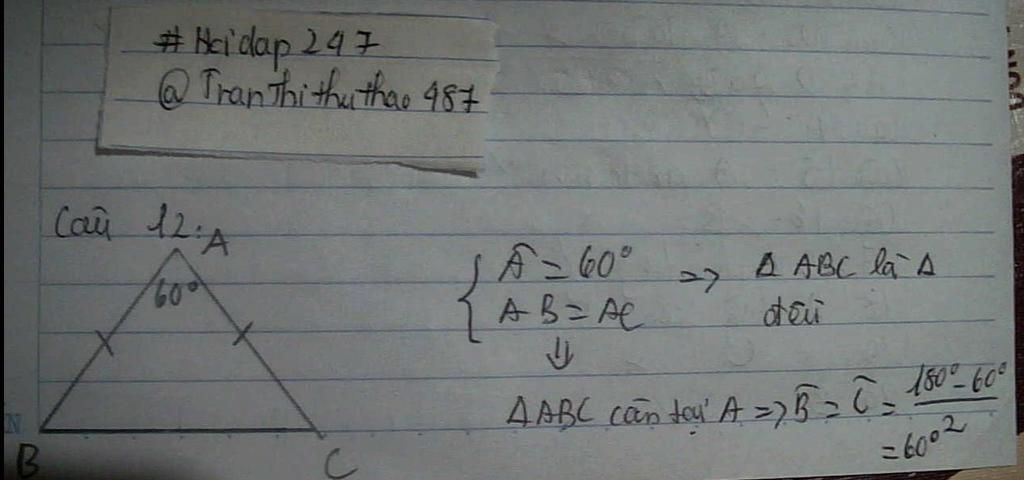 # Hoidap 247
@ Tran Thi thu thao 487
Câu 12:
A
60°
B
C
Â = 60° => Δ ABC là Δ
AB = AC đều
⇓
ΔABC cân tại A => B̂ = Ĉ = (180° - 60°)/2
= 60°